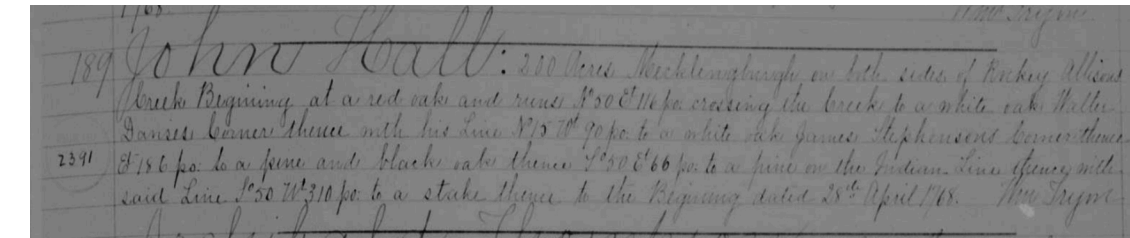 1768 Wm Tryon
189 John Hall: 200 Acres Mecklengburgh on both sides of Rockey Allisons
Creek Begining at a red oak and runs No 50 Et 116 po. crossing the Creek to a white oak Walter
Davises Corner thence with his Line No 15 Wt 90 po: to a white oak James Stephensons Corner thence
2391 Et 186 po: to a pine and black oak thence So 50 Et 66 po: to a pine on the Indian Line thence with
said Line So 50 Wt 310 po: to a stake thence to the Begining dated 28th April 1768. Wm Tryon